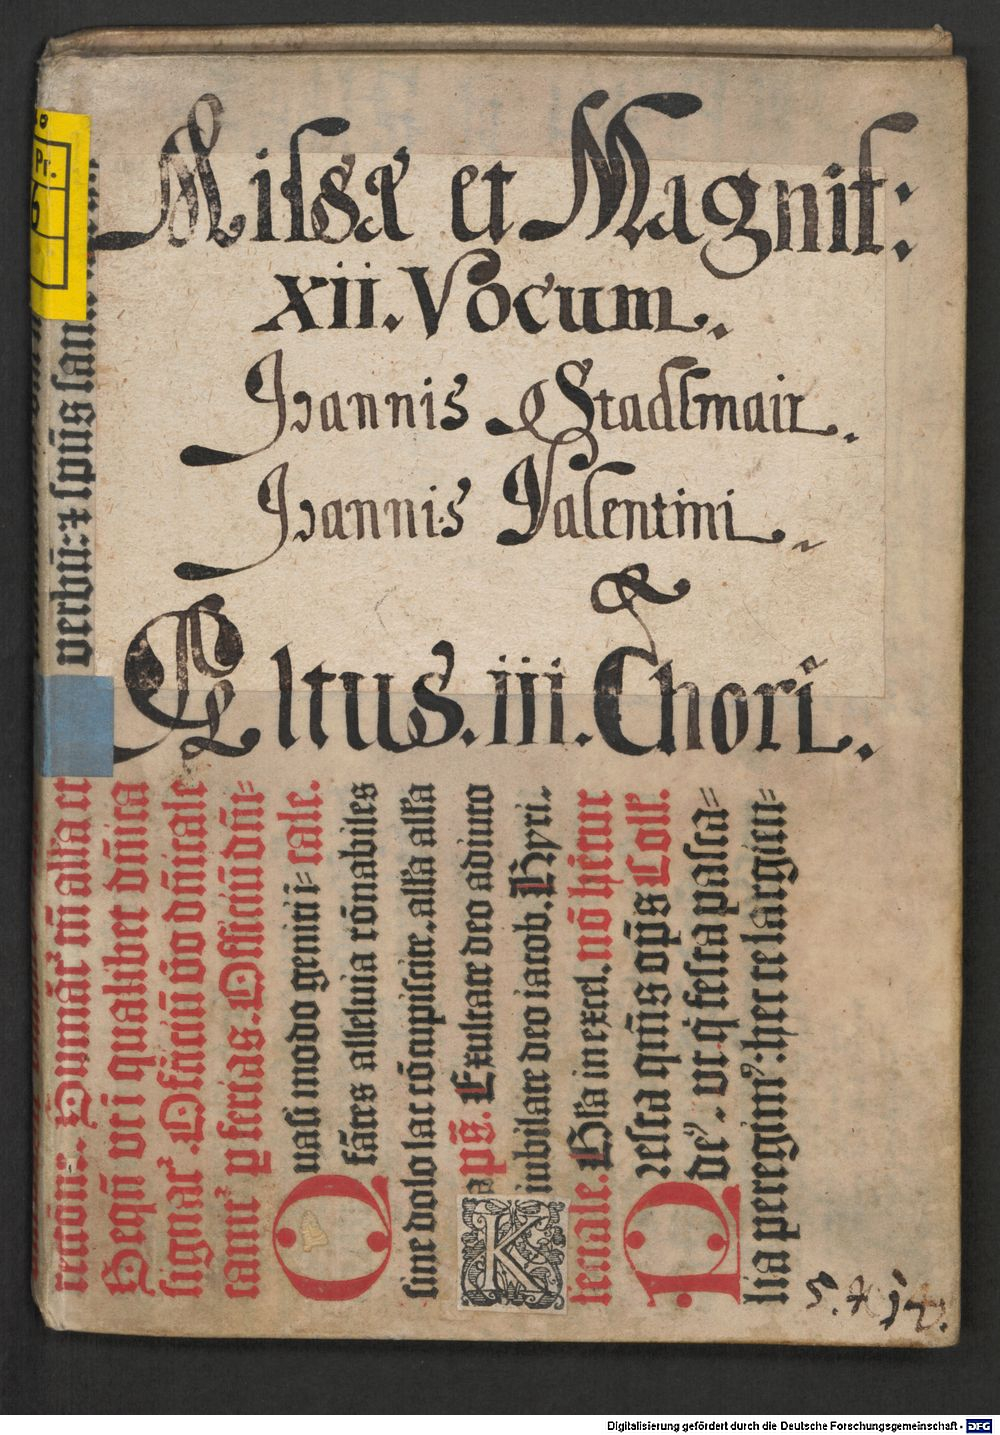 Missæ et Magnif:
xii. Vocum.
Ioannis Stadlmair.
Ioannis Valentini.
&
Altus. iii. Chori.
Pr.
verbū: ⁊ spūs sanc
Seqñ vt i qualibet dñica
signat᷑. Officiū v̄o dñicale
cant᷑ ꝑ ferias. Officiū dñi=
cale.
Quasi modo geniti i=
fātes alleluia rōnabiles
sine dolo lac cōcupiscite, alľa alľa
aps̄. Exultate deo adiuto
iubilate deo iacob. Kyri.
K
Gľa in excel. nō hētur
Coll'.
Presta qm̄s op̄s
de⁹. vt q̄ festa pasca=
lia peregim⁹: hec te largien=
5.
Digitalisierung gefördert durch die Deutsche Forschungsgemeinschaft - DFG